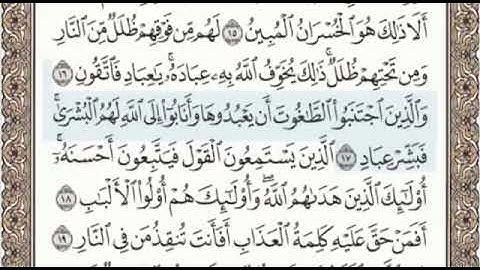 أَلَا ذَٰلِكَ هُوَ ٱلْخُسْرَانُ ٱلْمُبِينُ ١٥ لَهُم مِّن فَوْقِهِمْ ظُلَلٌ مِّنَ ٱلنَّارِ
وَمِن تَحْتِهِمْ ظُلَلٌ ۚ ذَٰلِكَ يُخَوِّفُ ٱللَّهُ بِهِۦ عِبَادَهُۥ ۚ يَٰعِبَادِ فَٱتَّقُونِ ١٦
وَٱلَّذِينَ ٱجْتَنَبُوا۟ ٱلطَّٰغُوتَ أَن يَعْبُدُوهَا وَأَنَابُوٓا۟ إِلَى ٱللَّهِ لَهُمُ ٱلْبُشْرَىٰ ۚ
فَبَشِّرْ عِبَادِ ١٧ ٱلَّذِينَ يَسْتَمِعُونَ ٱلْقَوْلَ فَيَتَّبِعُونَ أَحْسَنَهُۥٓ ۚ
أُو۟لَٰٓئِكَ ٱلَّذِينَ هَدَىٰهُمُ ٱللَّهُ ۖ وَأُو۟لَٰٓئِكَ هُمْ أُو۟لُوا۟ ٱلْأَلْبَٰبِ ١٨
أَفَمَنْ حَقَّ عَلَيْهِ كَلِمَةُ ٱلْعَذَابِ أَفَأَنتَ تُنقِذُ مَن فِى ٱلنَّارِ ١٩